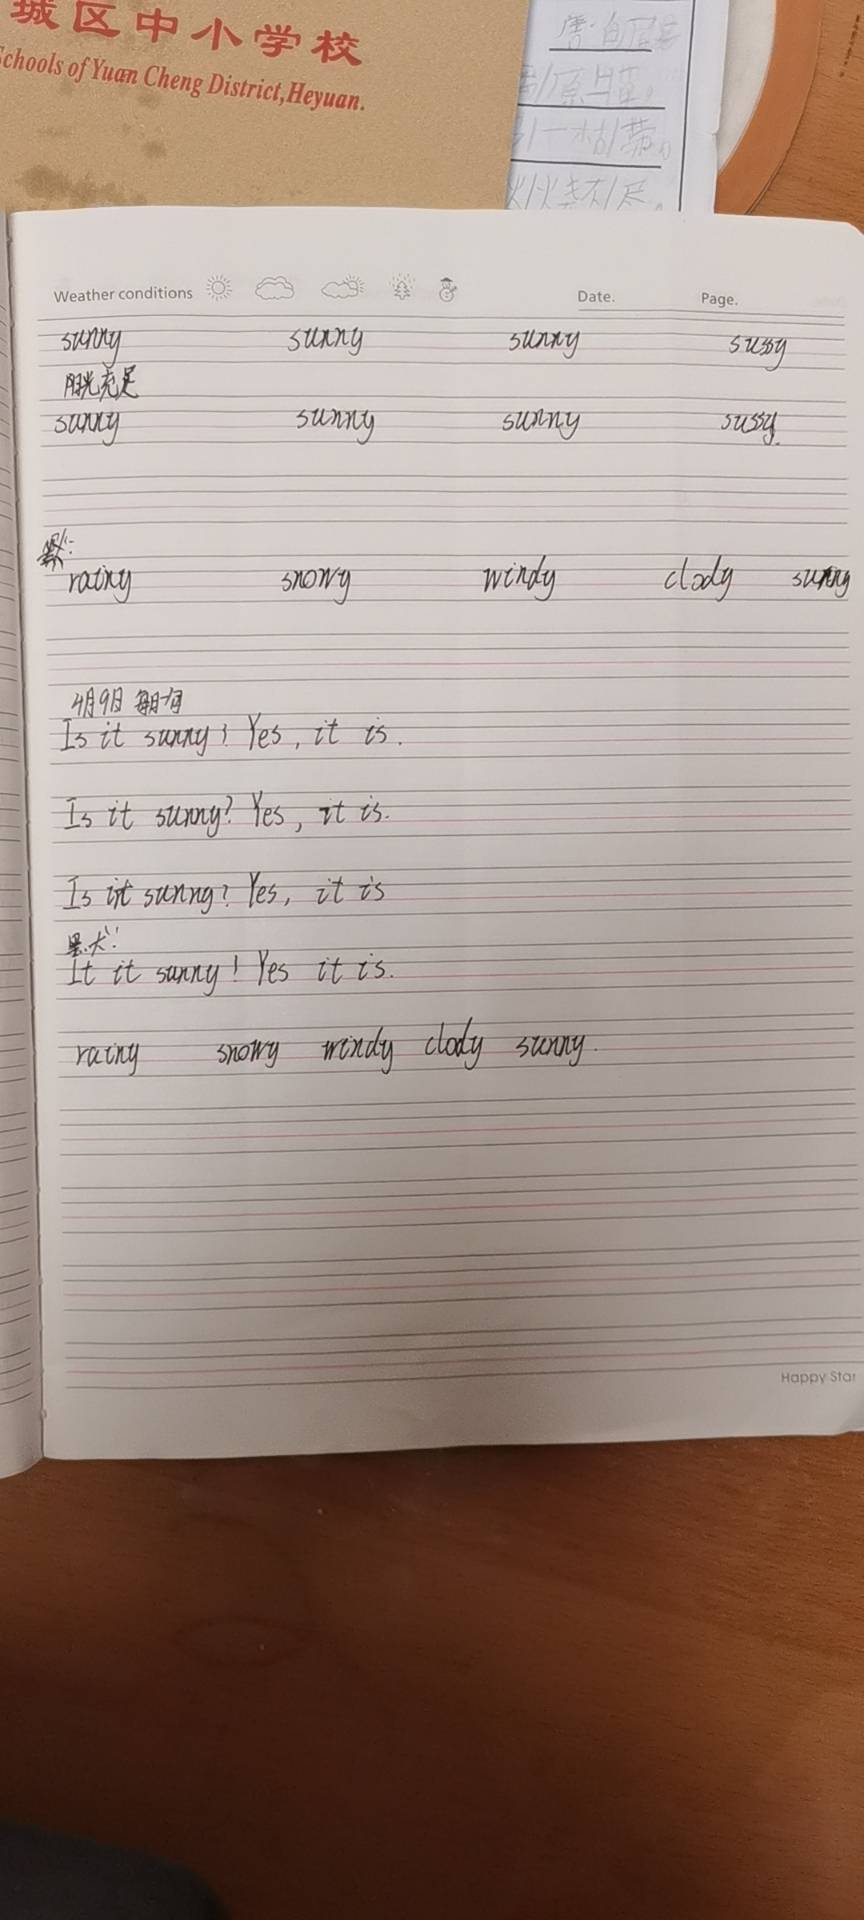 城区中小学校
Schools of Yuan Cheng District,Heyuan.
唐·白居易
原上草。
一岁一枯荣。
火烧不尽。
Weather conditions Date. Page.
sunny sunny sunny sussy
阳光充足
sunny sunny sunny sussy.
rainy snowy windy clody sunny
4月9日 每日一句
Is it sunny? Yes, it is.
Is it sunny? Yes, it is.
Is it sunng? Yes, it is
It it sunny! Yes it is.
rainy snowy windy clody sunny.
Happy Star